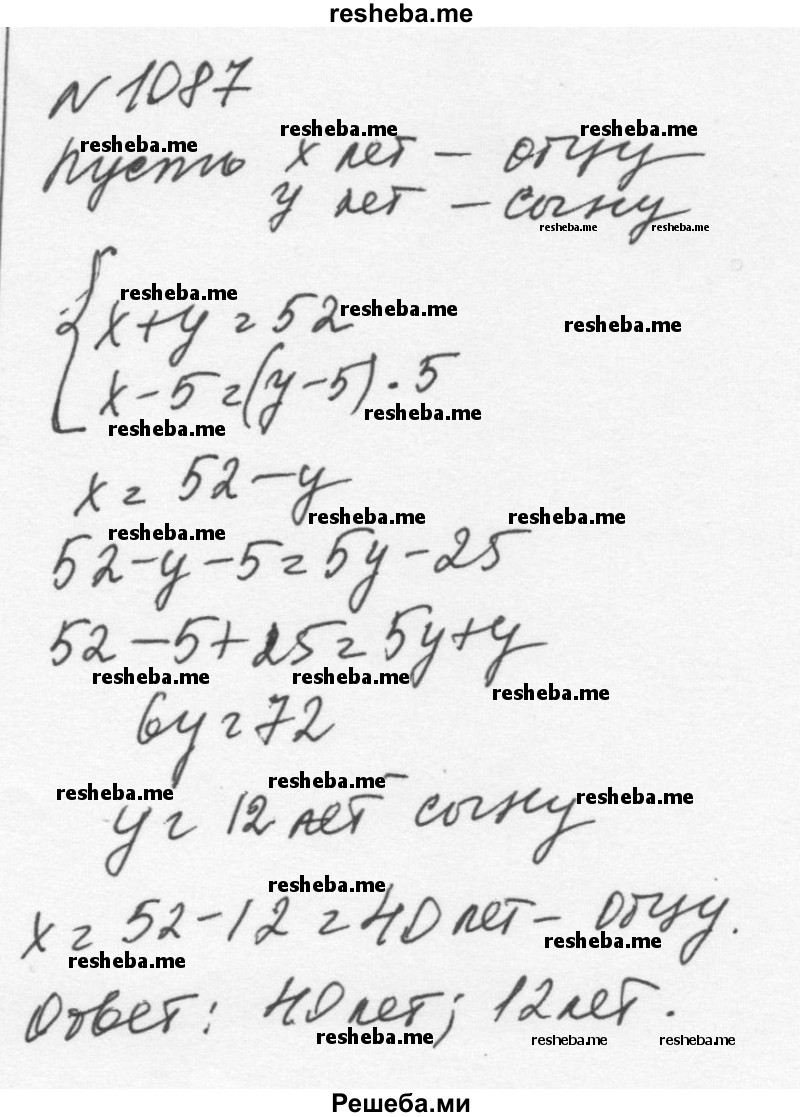 resheba.me
N 1087
resheba.me resheba.me resheba.me
Пусть x лет — отцу
y лет — сыну
resheba.me resheba.me
resheba.me resheba.me resheba.me
{ x + y = 52
x - 5 = (y - 5) · 5
resheba.me resheba.me
x = 52 - y
resheba.me resheba.me resheba.me
52 - y - 5 = 5y - 25
52 - 5 + 25 = 5y + y
resheba.me resheba.me resheba.me
6y = 72
resheba.me resheba.me resheba.me
y = 12 лет сыну
resheba.me
x = 52 - 12 = 40 лет — отцу.
resheba.me resheba.me
Ответ: 40 лет; 12 лет.
resheba.me resheba.me resheba.me
Решеба.ми